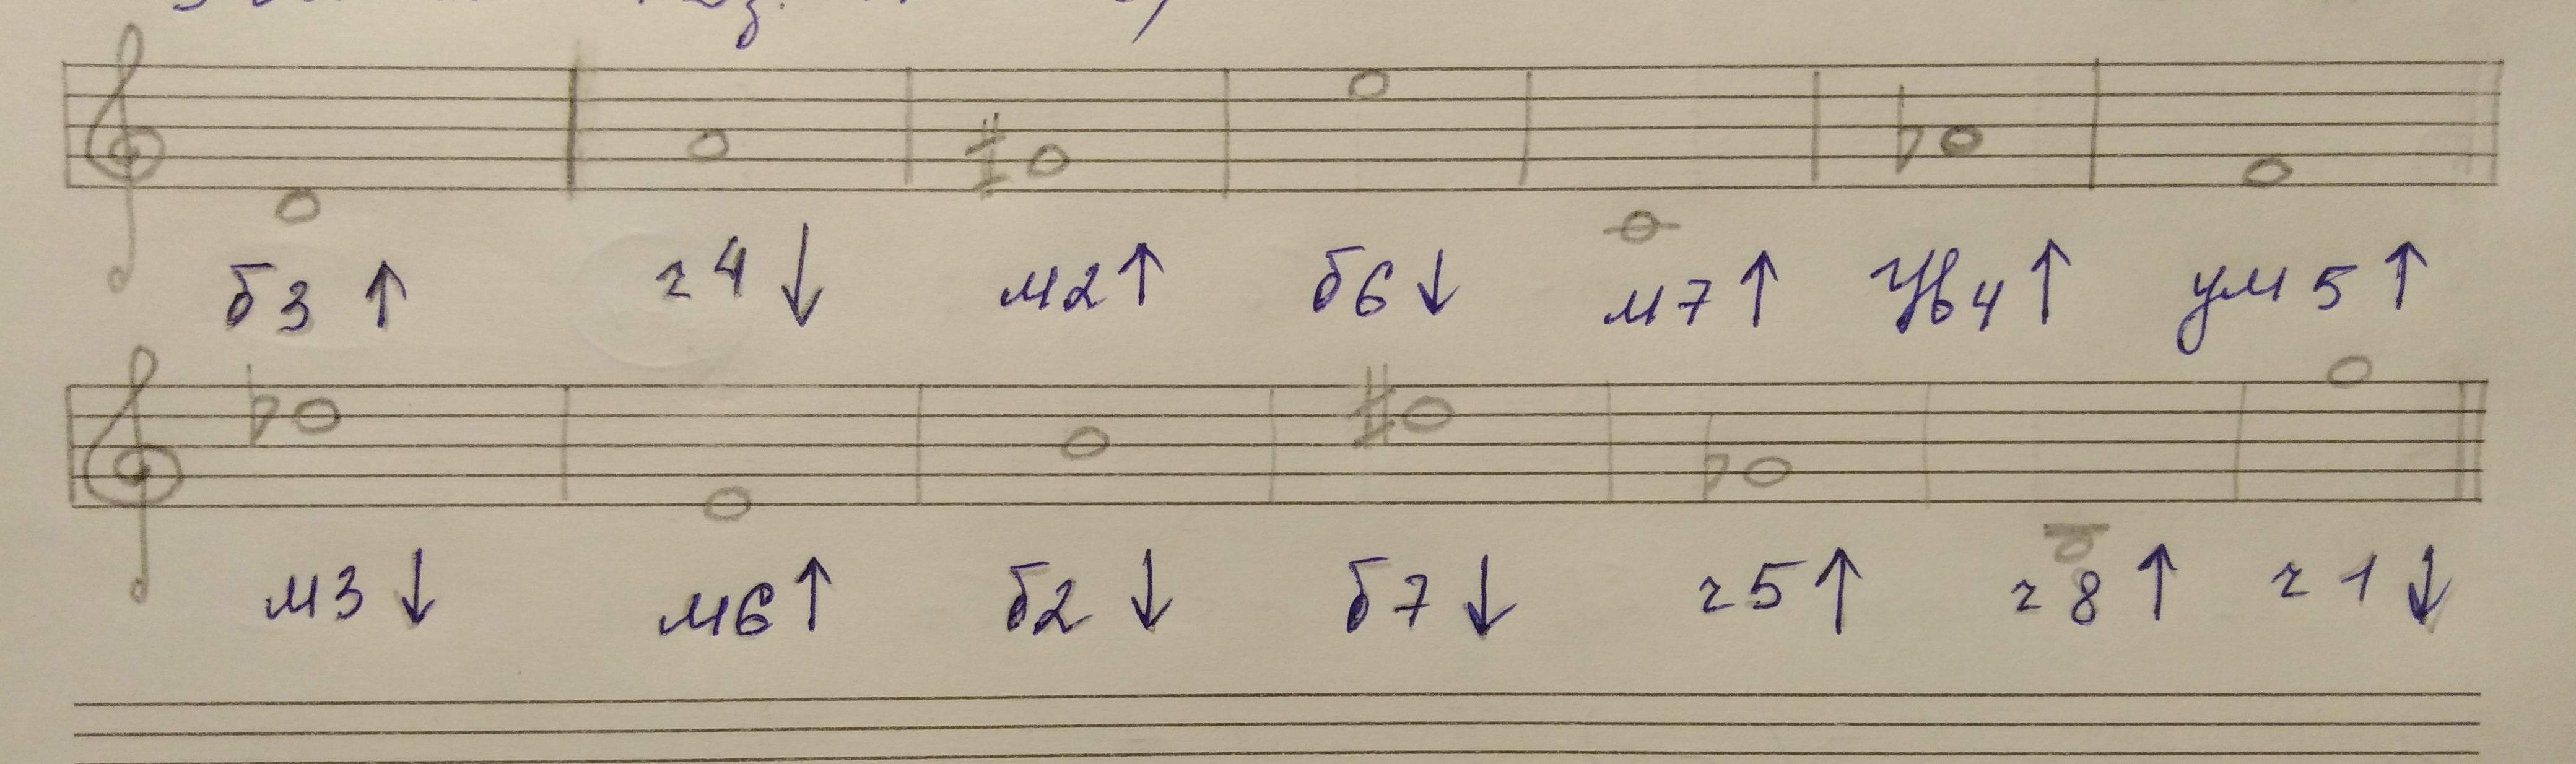 б3 ↑ ч4 ↓ м2 ↑ б6 ↓ м7 ↑ Ув4 ↑ ум5 ↑
м3 ↓ м6 ↑ б2 ↓ б7 ↓ ч5 ↑ ч8 ↑ ч1 ↓